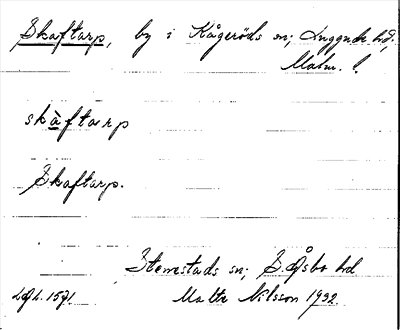 Skaftarp, by i Kågeröds sn; Luggude hd,
Malm. l.
skàftarp
Skaftarp.
Stenestads sn; S. Åsbo hd
Malte Nilsson 1932.